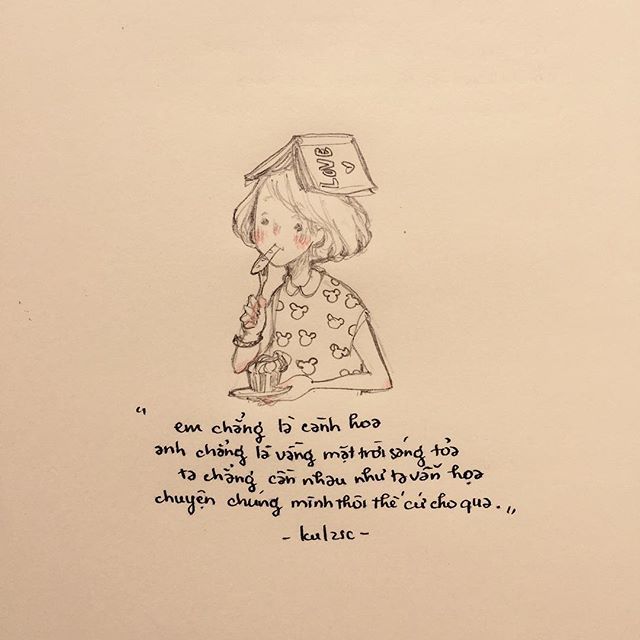 LOVE
“ em chẳng là cành hoa
anh chẳng là vầng mặt trời sáng tỏa
ta chẳng cần nhau như ta vẫn họa
chuyện chúng mình thôi thế cứ cho qua. „
- kulzsc -